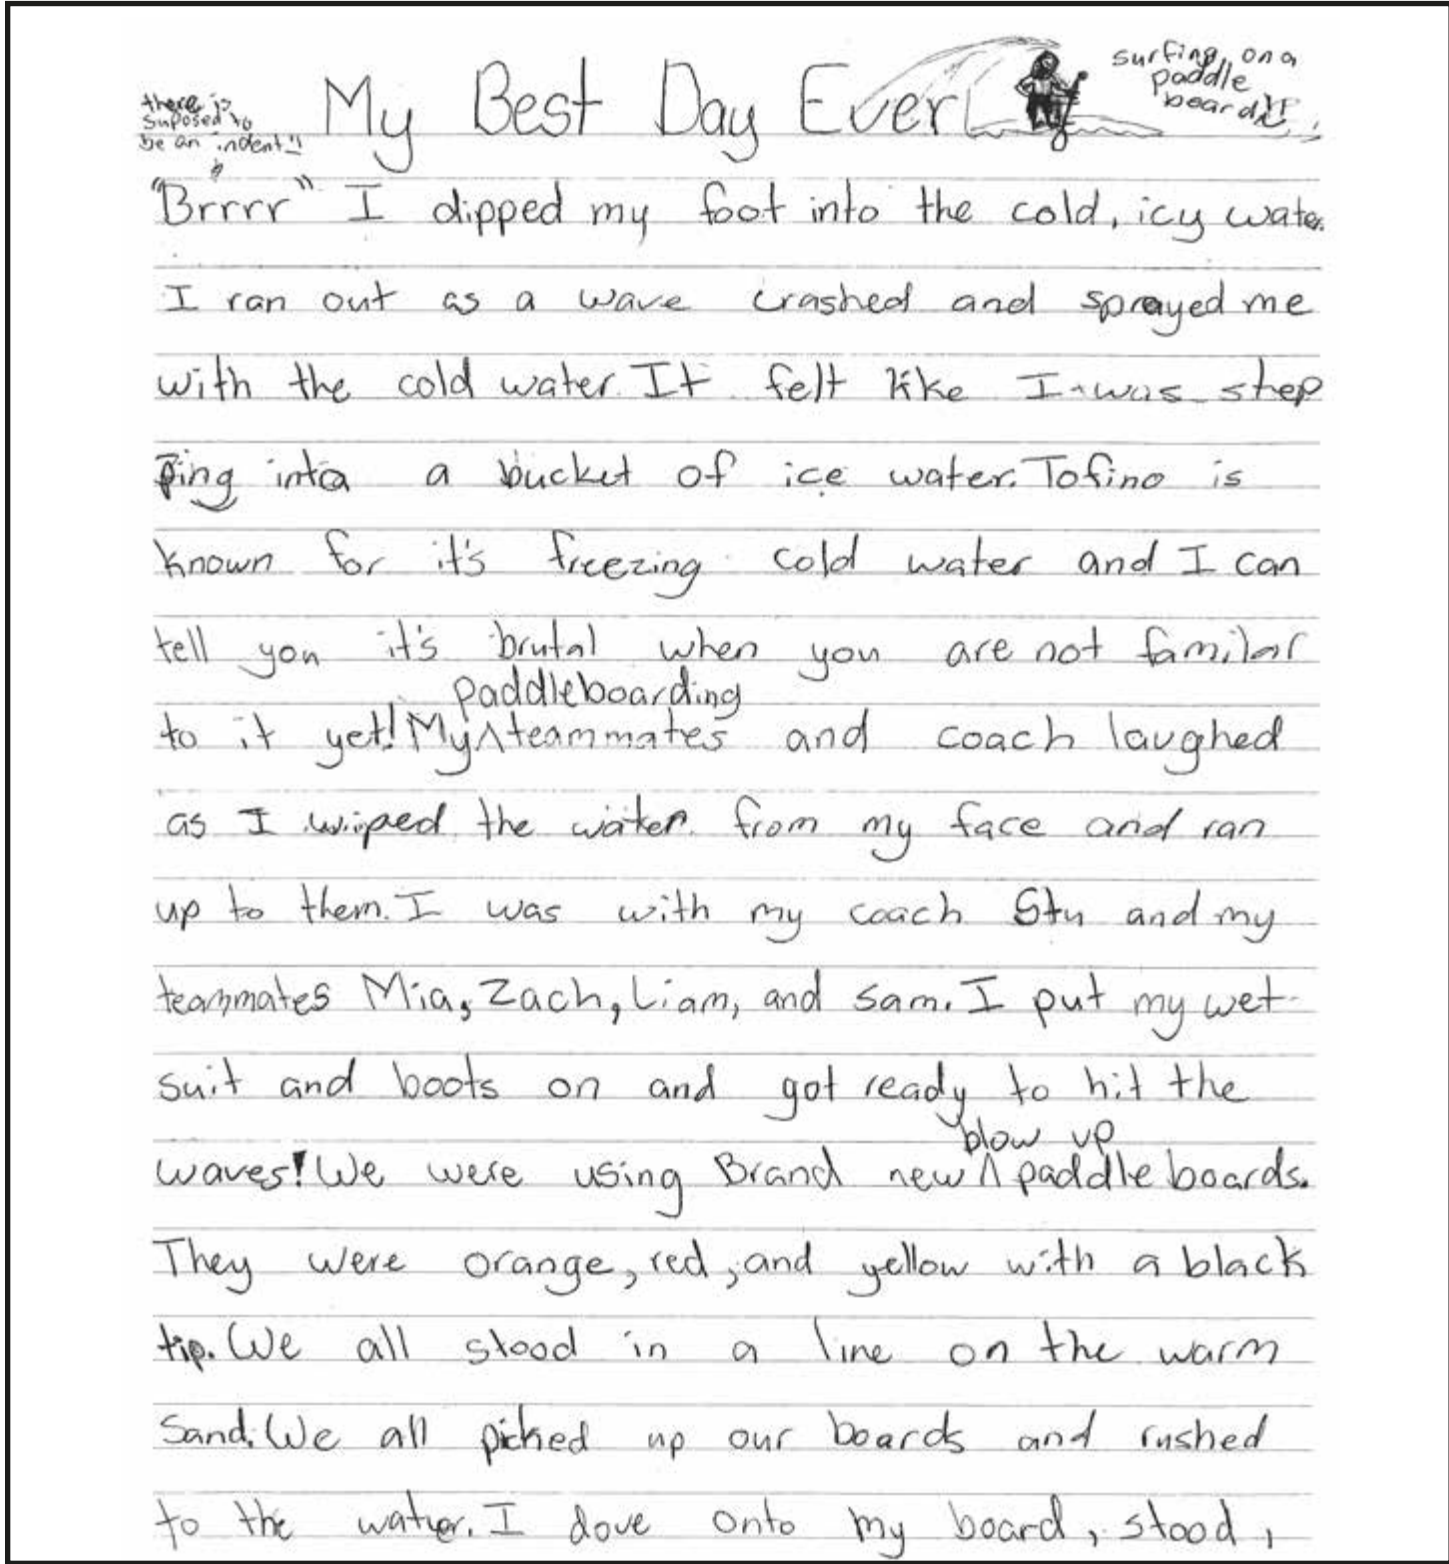 there is
suposed to
be an indent!!
My Best Day Ever!
surfing on a
paddle
board!!
"Brrrr" I dipped my foot into the cold, icy water.
I ran out as a wave crashed and sprayed me
with the cold water. It felt like I was step
ping into a bucket of ice water. Tofino is
known for it's freezing cold water and I can
tell you it's brutal when you are not familar
paddleboarding
to it yet! My ^ teammates and coach laughed
as I wiped the water from my face and ran
up to them. I was with my coach Stu and my
teammates Mia, Zach, Liam, and Sam. I put my wet-
suit and boots on and got ready to hit the
blow up
waves! We were using Brand new ^ paddle boards.
They were orange, red, and yellow with a black
tip. We all stood in a line on the warm
sand. We all picked up our boards and rushed
to the water. I dove onto my board, stood,